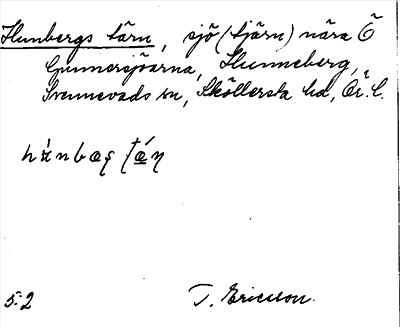 Hunbergs tärn, sjö (tjärn) nära Ö
Gunnarsjöarna, Hunneberg,
Svennevads sn, Sköllersta hd, Ör. l.
5.2 T. Ericsson.